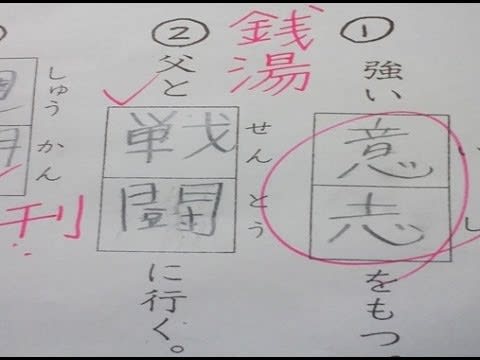 ①
強い
意志
をもつ
い
し
銭湯
②
父と
戦闘
せんとう
に行く。
しゅうかん
刊